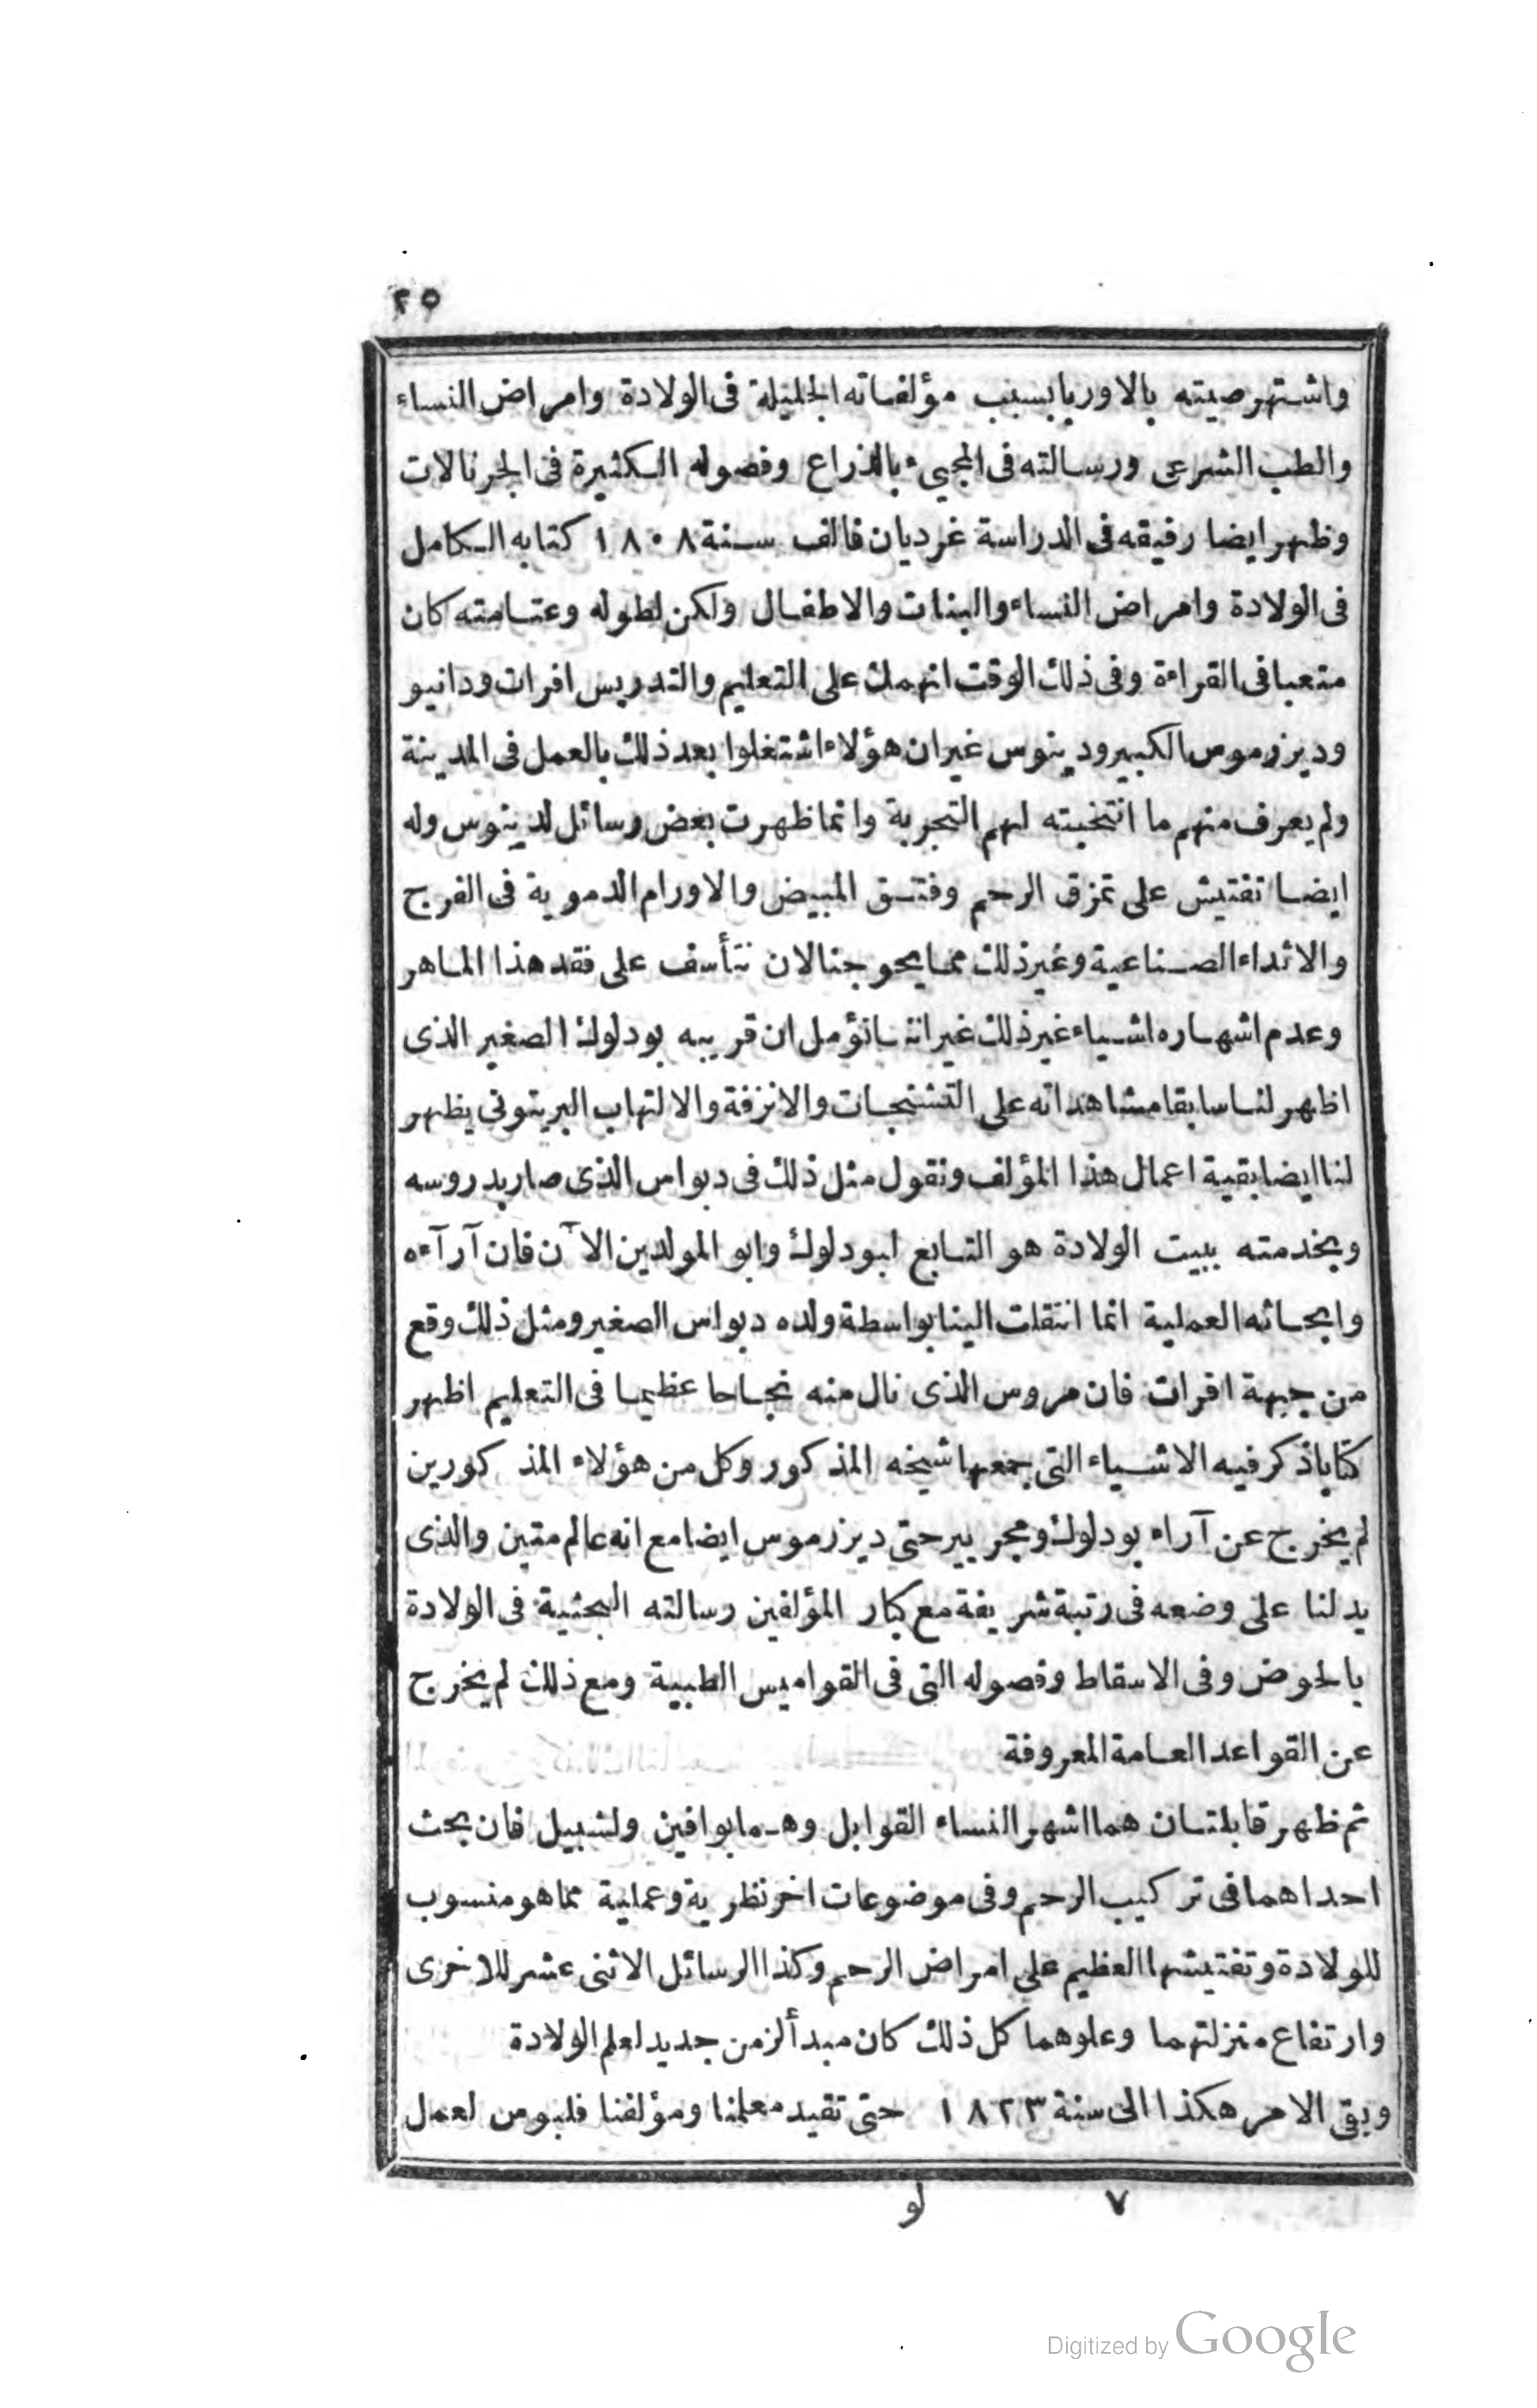 ٢٥
واشتهر صيته بالاوربا بسبب مؤلفاته الجليلة فى الولادة وامراض النساء
والطب الشرعى ورسالته فى المجىء بالذراع وفصوله الكثيرة فى الجرنالات
وظهر ايضا رفيقه فى الدراسة غرديان فالف سنة ١٨٠٨ كتابه الكامل
فى الولادة وامراض النساء والبنات والاطفال ولكن لطوله وعتامته كان
متعبا فى القراءة وفى ذلك الوقت انهمك على التعليم والتدريس افرات ودانيو
وديزرموس الكبير ودينوس غيران هؤلاء اشتغلوا بعد ذلك بالعمل فى المدينة
ولم يعرف منهم ما انتخبته لهم التجربة وانما ظهرت بعض رسائل لدينوس وله
ايضا تفتيش على تمزق الرحم وفتق المبيض والاورام الدموية فى الفرج
والاثداء الصناعية وغير ذلك مما يحوجنا لان نتأسف على فقد هذا الماهر
وعدم اشهاره اشياء غير ذلك غير اننا نؤمل ان قريبه بودلوك الصغير الذى
اظهر لنا سابقا مشاهداته على التشنجات والانزفة والالتهاب البريتونى يظهر
لنا ايضا بقية اعمال هذا المؤلف ونقول مثل ذلك فى دبواس الذى صار بدروسه
وبخدمته ببيت الولادة هو التابع لبودلوك وابو المولدين الآن فان آرآءه
وابحاثه العملية انما انتقلت الينا بواسطة ولده دبواس الصغير ومثل ذلك وقع
من جهة افرات فان مروس الذى نال منه نجاحا عظيما فى التعليم اظهر
كتابا ذكر فيه الاشياء التى جمعها شيخه المذكور وكل من هؤلاء المذكورين
لم يخرج عن آراء بودلوك ومجريير حتى ديزرموس ايضا مع انه عالم متين والذى
يدلنا على وضعه فى رتبة شريفة مع كبار المؤلفين رسالته البحثية فى الولادة
بالحوض وفى الاسقاط وفصوله التى فى القواميس الطبية ومع ذلك لم يخرج
عن القواعد العامة المعروفة
ثم ظهر قابلتان هما اشهر النساء القوابل وهما بوافين ولشبيل فان بحث
احداهما فى تركيب الرحم وفى موضوعات اخر نظرية وعملية مما هو منسوب
للولادة وتفتيشها العظيم على امراض الرحم وكذا الرسائل الاثنى عشر للاخرى
وارتفاع منزلتهما وعلوهما كل ذلك كان مبدأ لزمن جديد لعلم الولادة
وبقى الامر هكذا الى سنة ١٨٢٣ حتى تقيد معلمنا ومؤلفنا فلبوس لعمل
٧ لو
Digitized by Google